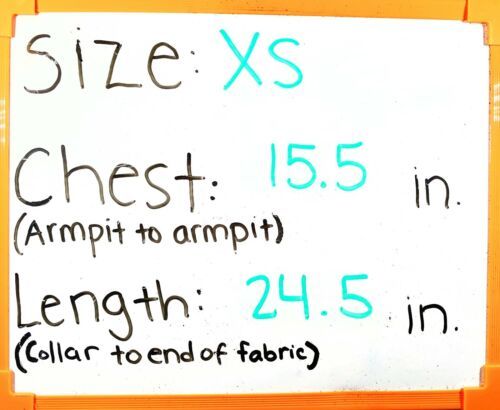 Size: XS
Chest: 15.5 in.
(Armpit to armpit)
Length: 24.5 in.
(Collar to end of fabric)